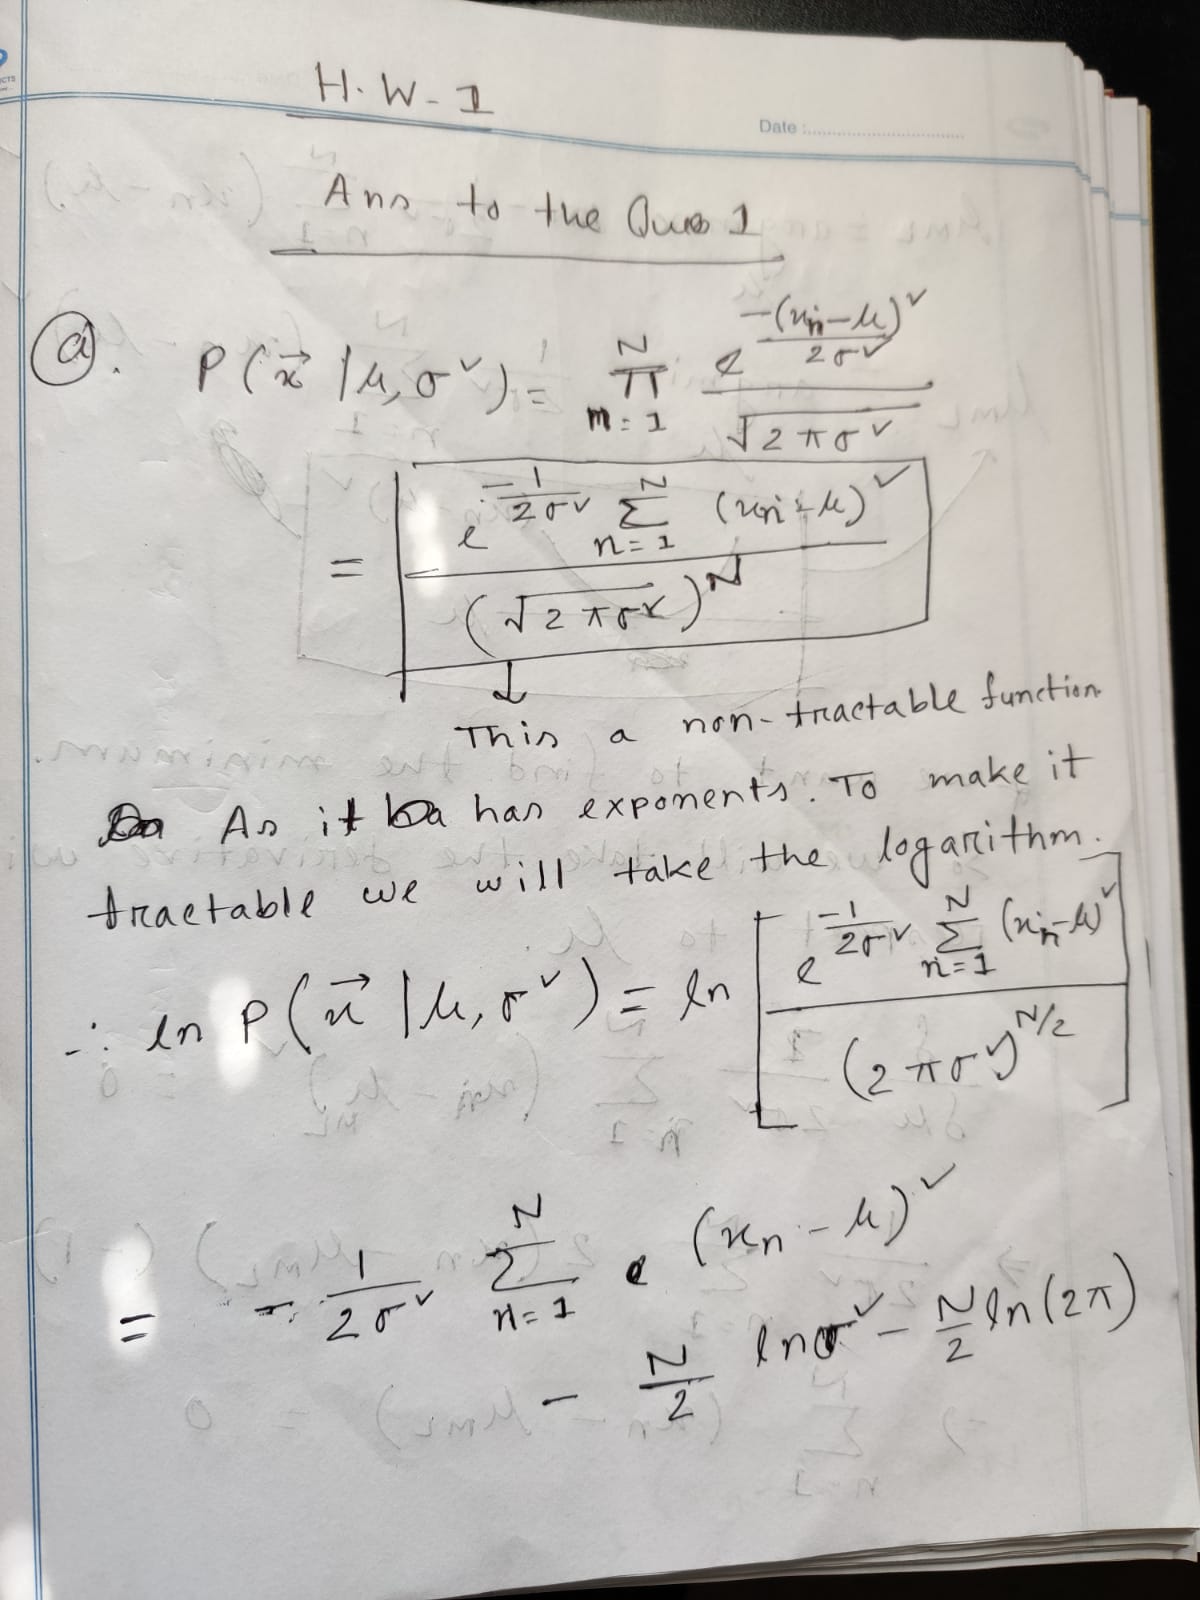 H.W-1
Date :
Ans to the Ques 1
a. P(x⃗ |μ, σ²) = ∏_{n=1}^{N} e^{-(xₙ-μ)²/2σ²} / √2πσ²
= e^{-1/2σ² Σ_{n=1}^{N} (xₙ-μ)²} / (√2πσ²)^N
↓
This a non-tractable function.
As it has exponents. To make it
tractable we will take the logarithm.
∴ ln P(x⃗ |μ, σ²) = ln [ e^{-1/2σ² Σ_{n=1}^{N} (xₙ-μ)²} / (2πσ²)^{N/2} ]
= - 1/2σ² Σ_{n=1}^{N} (xₙ - μ)²
- N/2 lnσ² - N/2 ln(2π)